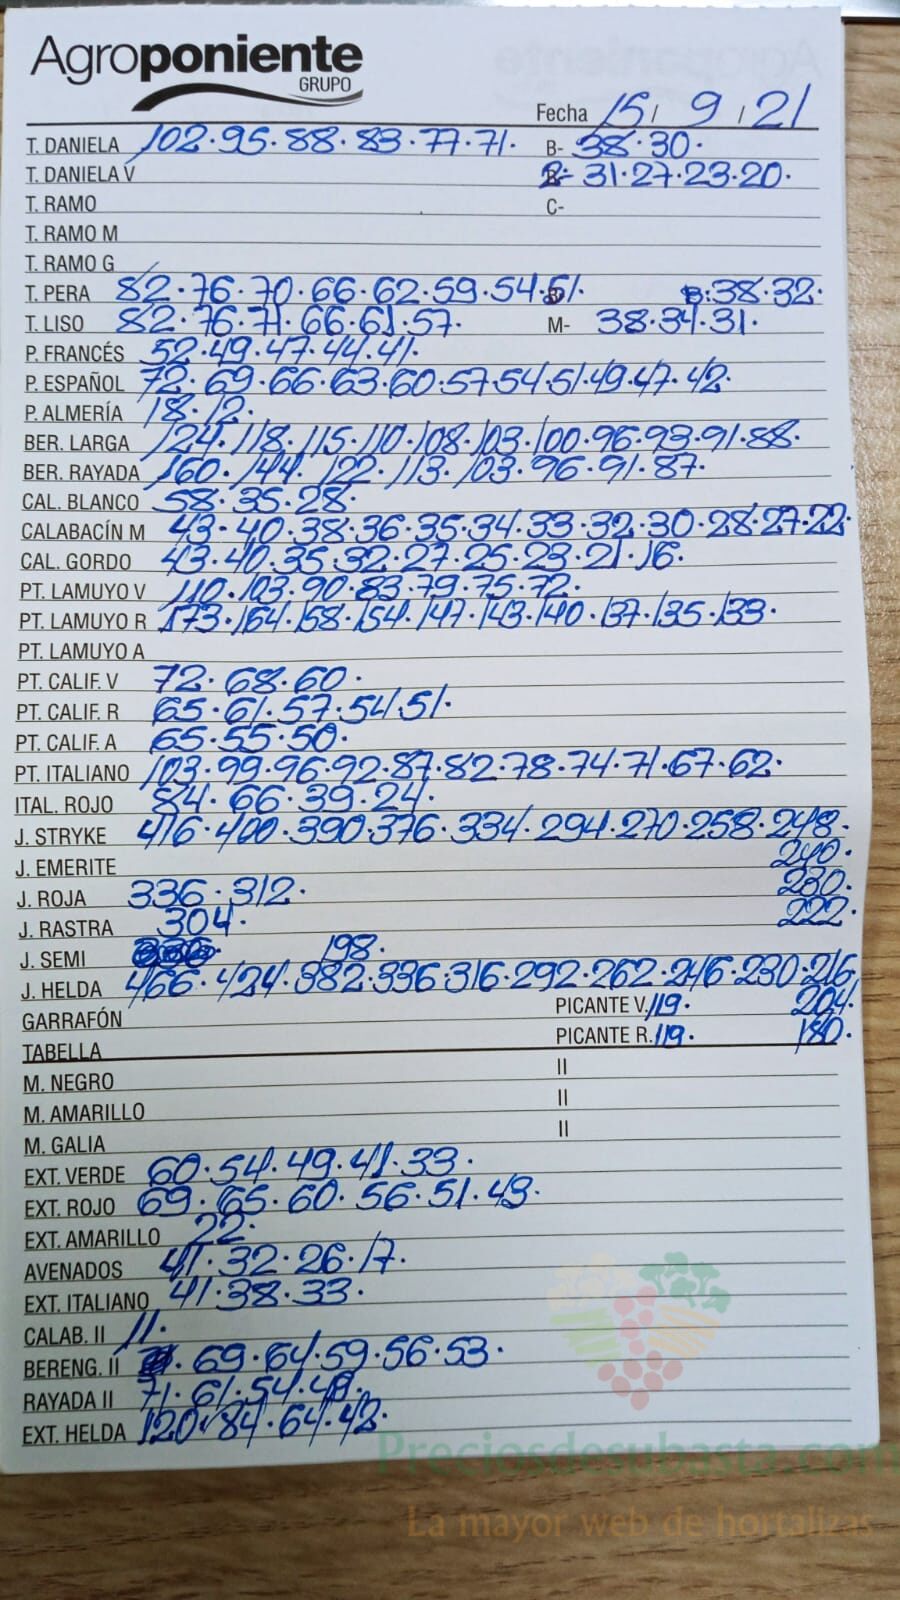 Agroponiente
GRUPO
Fecha 15 / 9 / 21
T. DANIELA 102·95·88·83·77·71· B- 38·30·
T. DANIELA V 31·27·23·20·
T. RAMO C-
T. RAMO M
T. RAMO G
T. PERA 82·76·70·66·62·59·54·51· B:38·32·
T. LISO 82·76·71·66·61·57· M- 38·34·31·
P. FRANCÉS 52·49·47·44·41·
P. ESPAÑOL 72·69·66·63·60·57·54·51·49·47·42·
P. ALMERÍA 18·12·
BER. LARGA 124·118·115·110·108·103·100·96·93·91·88·
BER. RAYADA 160·144·122·113·103·96·91·87·
CAL. BLANCO 58·35·28·
CALABACÍN M 43·40·38·36·35·34·33·32·30·28·27·22·
CAL. GORDO 43·40·35·32·27·25·23·21·16·
PT. LAMUYO V 110·103·90·83·79·75·72·
PT. LAMUYO R 173·164·158·154·147·143·140·137·135·133·
PT. LAMUYO A
PT. CALIF. V 72·68·60·
PT. CALIF. R 65·61·57·54·51·
PT. CALIF. A 65·55·50·
PT. ITALIANO 103·99·96·92·87·82·78·74·71·67·62·
ITAL. ROJO 84·66·39·24·
J. STRYKE 416·400·390·376·334·294·270·258·248·
J. EMERITE 240·
J. ROJA 336·312· 230·
J. RASTRA 304· 222·
J. SEMI 198·
J. HELDA 466·424·382·336·316·292·262·246·230·216·
GARRAFÓN PICANTE V. 119· 204·
TABELLA PICANTE R. 119· 180·
M. NEGRO II
M. AMARILLO II
M. GALIA II
EXT. VERDE 60·54·49·41·33·
EXT. ROJO 69·65·60·56·51·43·
EXT. AMARILLO 22·
AVENADOS 41·32·26·17·
EXT. ITALIANO 41·38·33·
CALAB. II 11·
BERENG. II 69·64·59·56·53·
RAYADA II 71·61·54·48·
EXT. HELDA 120·84·64·42·
Preciosdesubasta.com
La mayor web de hortalizas